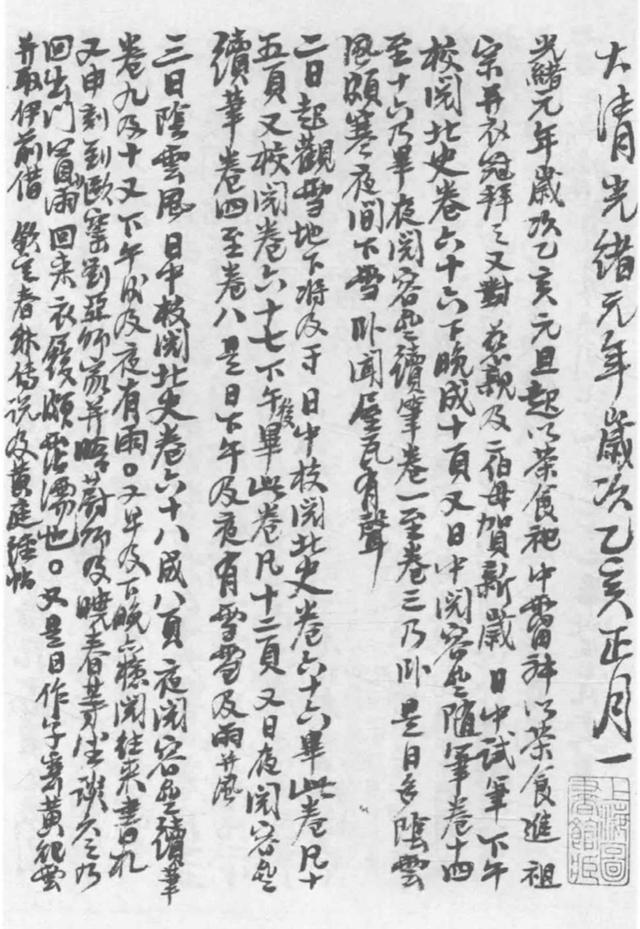 大清光緒元年歲次乙亥正月一
光緒元年歲次乙亥元旦起以茶食祀中霤神以茶食進祖
宗并衣冠拜之又對慈親及二伯母賀新歲日中試筆下午
校閱北史卷六十六下晚成十頁又日中閱容齋隨筆卷十四
至十六乃畢夜閱容齋續筆卷一至卷三乃卧是日多陰雲
風頗寒夜間下雪卧聞屋瓦有聲
二日起觀雪地下將及寸日中校閱北史卷六十六畢此卷凡十
五頁又校閱卷六十七下午後畢此卷凡十二頁又日夜閱容齋
續筆卷四至卷八是日下午及夜有雪雪及雨并風
三日陰雲風日中校閱北史卷六十八成八頁夜閱容齋續筆
卷九及十又下午及夜有雨又早及下晚亦檢閱往來書札
又申刻到歐窯劉亞師家并晤蔚師及曉春等坐談久之乃
回出門冒雨回來衣履頗霑濡也又是日作字寄黃
并取伊前借欽定春秋傳說及黃庭經帖
上海圖書館藏